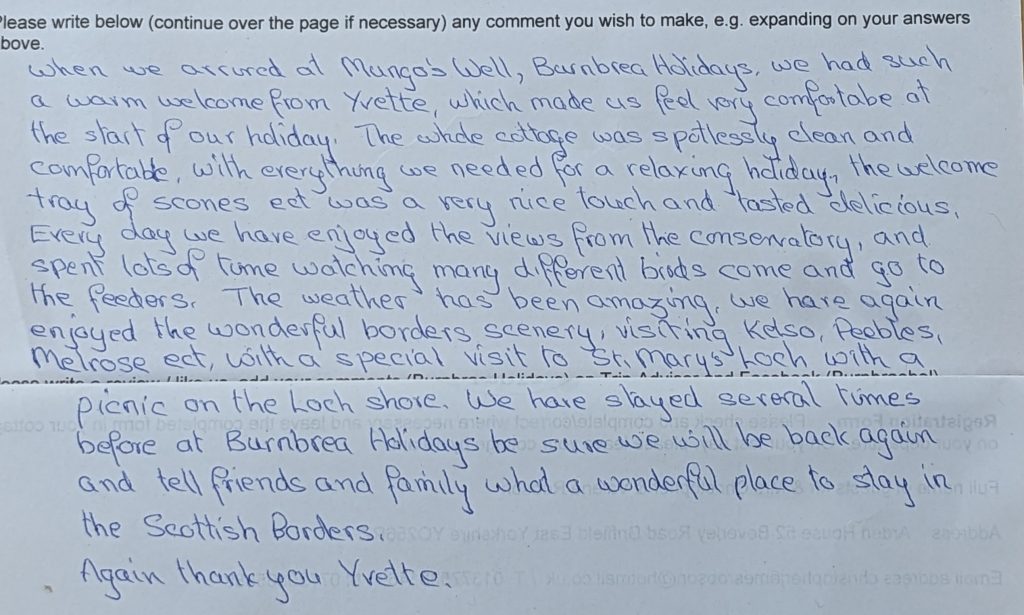 lease write below (continue over the page if necessary) any comment you wish to make, e.g. expanding on your answers
bove.
When we arrived at Mungo's Well, Burnbrea Holidays, we had such
a warm welcome from Yvette, which made us feel very comfortabe at
the start of our holiday. The whole cottage was spotlessly clean and
comfortable, with everything we needed for a relaxing holiday, the welcome
tray of scones ect was a very nice touch and tasted delicious.
Every day we have enjoyed the views from the conservatory, and
spent lots of time watching many different birds come and go to
the feeders. The weather has been amazing, we have again
enjoyed the wonderful borders scenery, visiting Kelso, Peebles,
Melrose ect, with a special visit to St. Mary's Loch with a
picnic on the Loch shore. We have stayed several times
before at Burnbrea Holidays be sure we will be back again
and tell friends and family what a wonderful place to stay in
the Scottish Borders.
Again thank you Yvette.